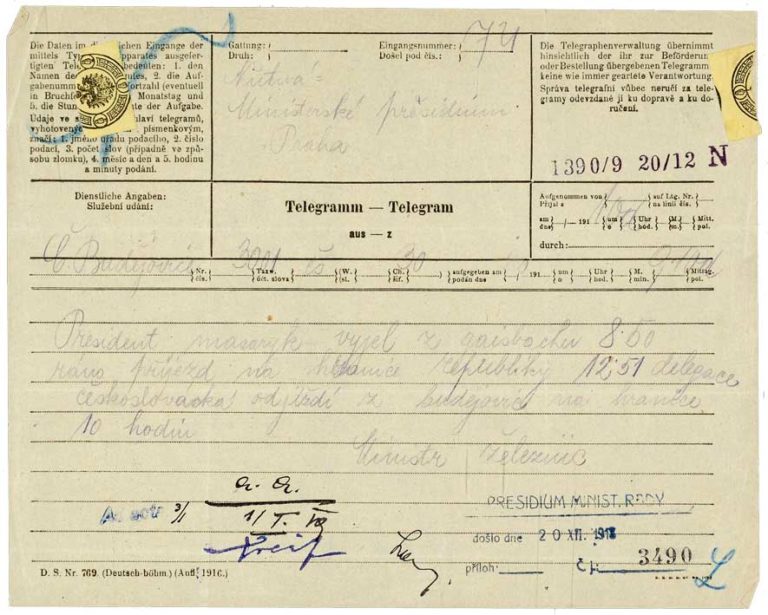 Die Daten im dienstlichen Eingange der
mittels Typ Apparates ausgefer-
tigten Tele bedeuten: 1. den
Namen de tes, 2. die Auf-
gabenumm ortzahl (eventuell
in Bruchfo Monatstag und
5. die Stun te der Aufgabe.
Udaje ve s lavi telegramů,
vyhotovené písmenkovým,
značí: 1. jméno úřadu podacího, 2. číslo
podací, 3. počet slov (případně ve způ-
sobu zlomku), 4. měsíc a den a 5. hodinu
a minuty podání.
Gattung:
Druh:
Eingangsnummer:
Došel pod čís.:
Nutná
Ministerské présidium
Praha
Die Telegraphenverwaltung übernimmt
hinsichtlich der ihr zur Beförderun
oder Bestellung übergebenen Telegramm
keine wie immer geartete Verantwortung.
Správa telegrafní vůbec neručí za tele-
gramy odevzdané jí ku dopravě a ku do-
ručení.
1390/9 20/12 N
Dienstliche Angaben:
Služební udání:
Telegramm — Telegram
aus — z
Aufgenommen von
Přijal a
auf Ltg. Nr.
na linii čís.
am
dne
191
um
o
Uhr
hod.
M.
m.
Mitt.
pol.
durch:
Č. Budějovic
Nr.
čís.
3001
Taxw.
účt. slova
čs
(W.
(sl.
30
Ch.
šif.
aufgegeben am
podán dne
191
um
o
Uhr
hod.
M.
min.
Mittag.
pol.
President masaryk vyjel z gaisbachu 8.50
ráno příjezd na hranice republiky 12.51 delegace
československá odjíždí z budějovic na hranice
10 hodin
Ministr železnic
a. a.
PRESIDIUM MINIST. RADY
došlo dne 20 XII. 1918
příloh: čj: 3490
D. S. Nr. 769. (Deutsch-böhm.) (Aufl. 1916.)